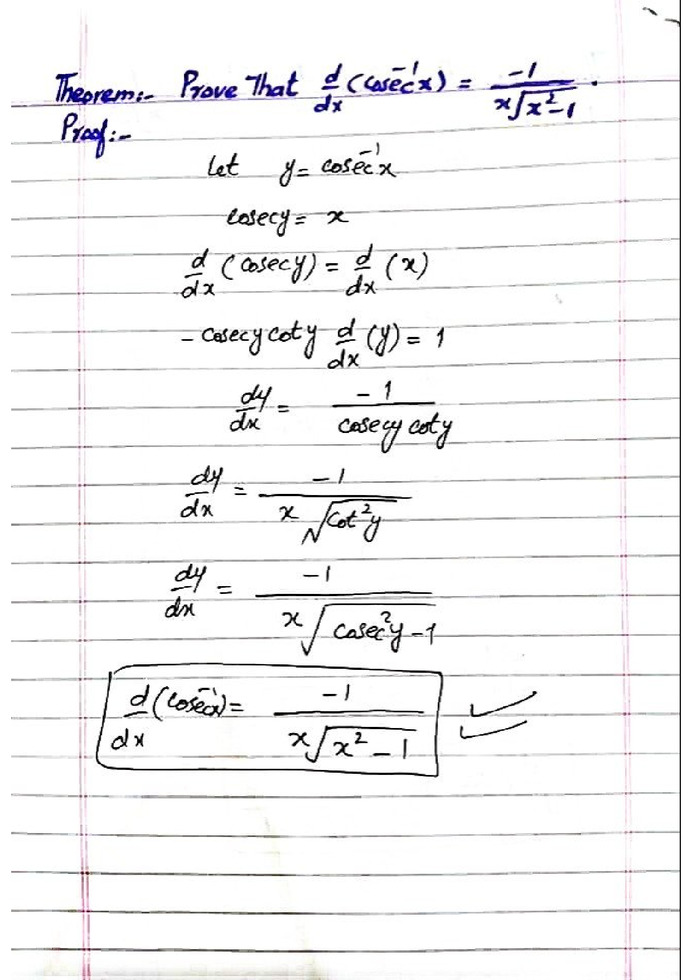 Theorem:- Prove That d/dx (cosec⁻¹x) = -1/(x√(x²-1)).
Proof:-
Let y = cosec⁻¹x
cosecy = x
d/dx (cosecy) = d/dx (x)
- cosecy coty d/dx (y) = 1
dy/dx = -1/(cosecy coty)
dy/dx = -1/(x√(cot²y))
dy/dx = -1/(x√(cosec²y-1))
d/dx (cosec⁻¹x) = -1/(x√(x²-1))